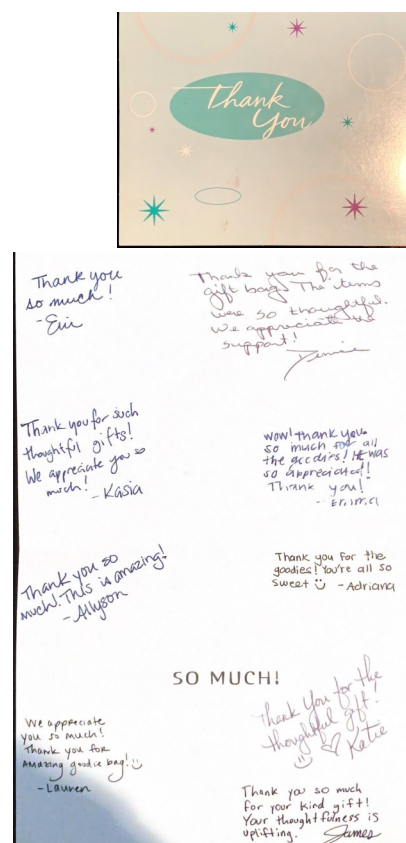 Thank
You
Thank you
so much!
Thank you for the
gift bag. The items
were so thoughtful.
We appreciate the
support!
Thank you for such
thoughtful gifts!
We appreciate you so
much!
- Kasia
wow! thank you
so much for all
the goodies! It was
so appreciated!!
Thank you!
Thank you so
much. This is amazing!
- Allyson
Thank you for the
goodies! You're all so
sweet - Adriana
SO MUCH!
Thank you for the
thoughtful gift!
Katie
We appreciate
you so much!
Thank you for
Amazing goodie bag!
- Lauren
Thank you so much
for your kind gift!
Your thoughtfulness is
uplifting. James